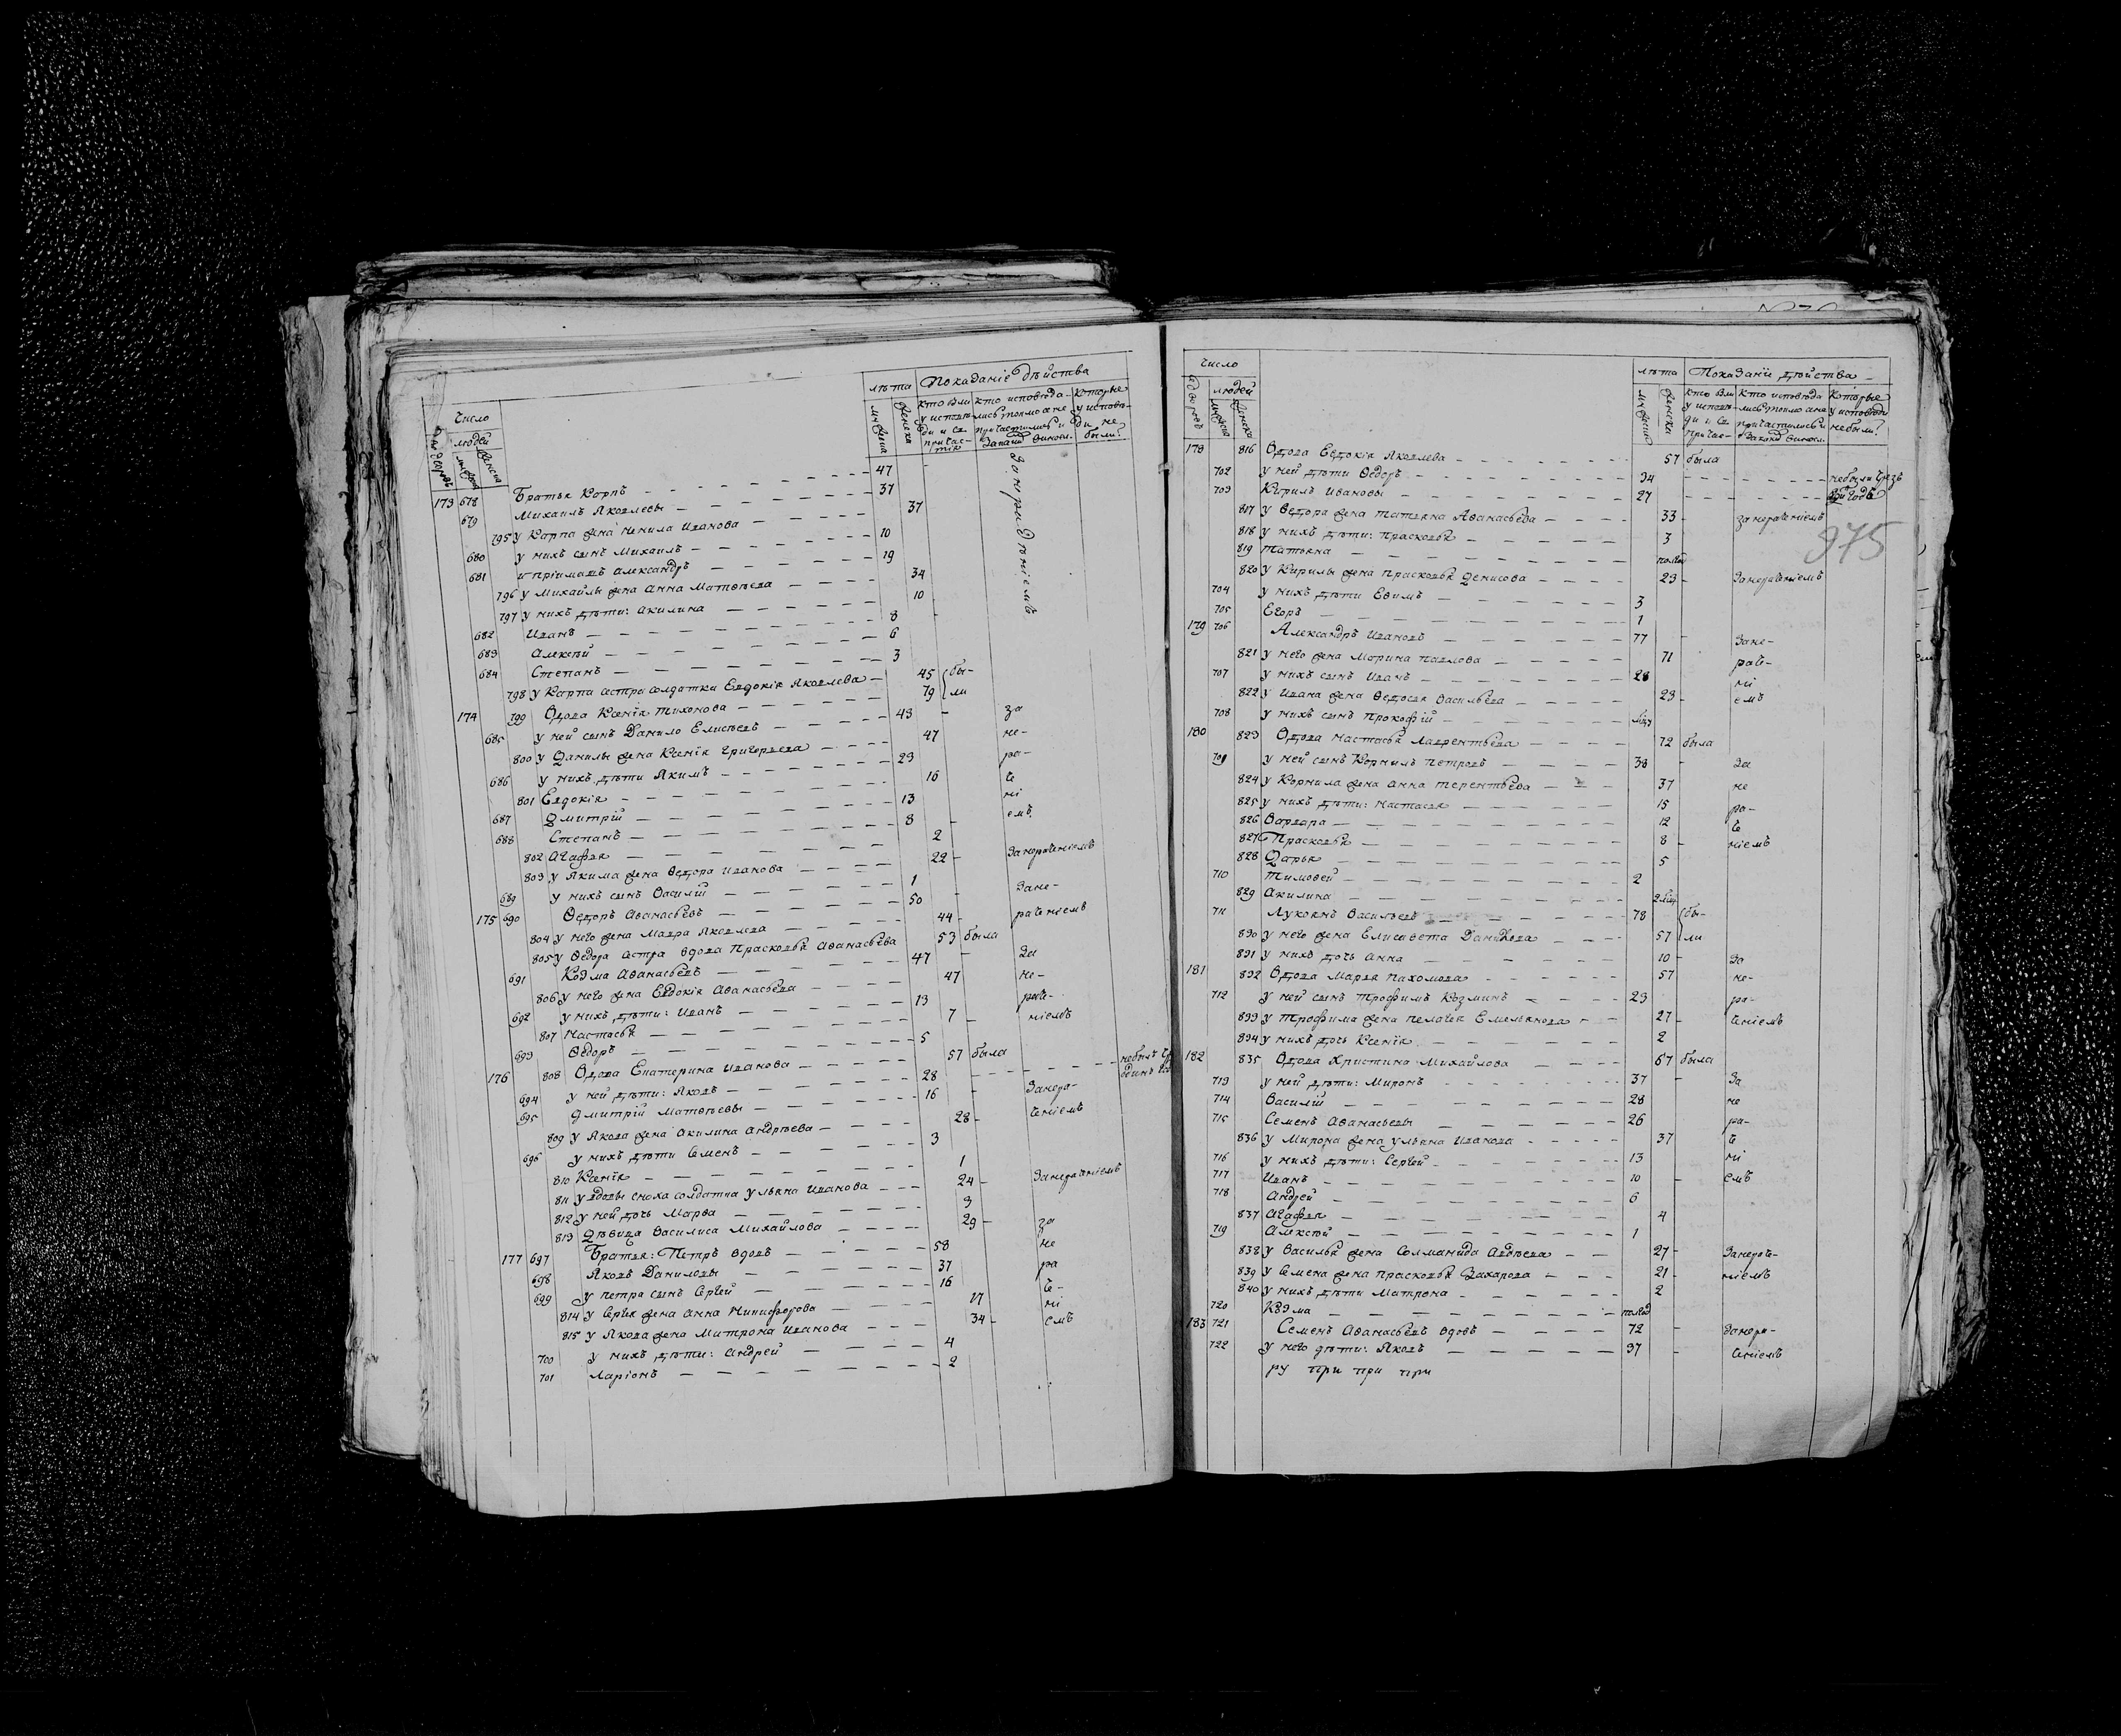 Число
людей
лѣта
Показаніе дѣйства
173 678 Братья Карпъ 47
679 Михаилъ Яковлевы 37
795 у Карпа жена Ненила Иванова 37
680 у нихъ сынъ Михаилъ 10
681 и пріимашъ Александръ 19
796 у Михайлы жена Анна Матвѣева 34
797 у нихъ дѣти: Акилина 10
682 Иванъ 8
683 Алексѣй 6
684 Степанъ 3
798 у Карпа сестра солдатка Евдокія Яковлева 45 бы-
174 799 Вдова Ксенія Тихонова 79 ли
685 у ней сынъ Данило Елисѣевъ 43 за
800 у Данилы жена Ксенія Григорьева 47 не-
686 у нихъ дѣти Якимъ 23 ра-
801 Евдокія 16 че
687 Дмитрій 13 ні
688 Степанъ 8 емъ
802 Агафья 2
803 у Якима жена Ѳедора Иванова 22 занераченіемъ
689 у нихъ сынъ Василій 1
175 690 Ѳедоръ Аѳанасьевъ 50 зане-
804 у него жена Мавра Яковлева 44 раченіемъ
805 у Ѳедора сестра вдова Прасковья Аѳанасьева 53 была
691 Козма Аѳанасьевъ 47 за
806 у него жена Евдокія Аѳанасьева 47 не-
692 у нихъ дѣти: Иванъ 13 раче-
807 Настасья 7 ніемъ
693 Ѳедоръ 5
176 808 Вдова Екатерина Иванова 57 была
694 у ней дѣти: Яковъ 28 небылъ
695 Дмитрій Матвѣевы 16 занера-
809 у Якова жена Акилина Андрѣева 28 ченіемъ
696 у нихъ дѣти Семенъ 3
810 Ксенія 1
811 у вдовы сноха солдатка Ульяна Иванова 24 занераченіемъ
812 у ней дочь Марѳа 3
813 Дѣвица Василиса Михайлова 29 за
177 697 Братья: Петръ вдовъ 58 не
698 Яковъ Даниловы 37 ра
699 у Петра сынъ Сергѣй 16 че-
814 у Сергѣя жена Анна Никифорова 17 ні
815 у Якова жена Матрона Иванова 34 емъ
700 у нихъ дѣти: Андрей 4
701 Ларіонъ 2
Число
людей
лѣта
Показаніи дѣйства
178 816 Вдова Евдокія Яковлева 57 была
702 у ней дѣти Ѳедоръ 34 небыли чрезъ
703 Кирилъ Ивановы 27
817 у Ѳедора жена Татьяна Аѳанасьева 33 занераченіемъ
818 у нихъ дѣти: Прасковья 3
975
819 Татьяна полгод
820 у Кирилы жена Прасковья Денисова 23 занераченіемъ
704 у нихъ дѣти Ефимъ 3
705 Егоръ 1
179 706 Александръ Ивановъ 77 зане-
821 у него жена Марина Павлова 71 раче-
707 у нихъ сынъ Иванъ 28 ні
822 у Ивана жена Ѳедосья Васильева 23 емъ
708 у нихъ сынъ Прокофій
180 823 Вдова Настасья Лаврентьева 72 была
709 у ней сынъ Корнилъ Петровъ 38 за
824 у Корнила жена Анна Терентьева 37 не
825 у нихъ дѣти: Настасья 15 ра-
826 Варвара 12 че
827 Прасковья 8 ніемъ
828 Дарья 5
710 Тимоѳей 2
829 Акилина
711 Лукоянъ Васильевъ 78 бы-
830 у него жена Елисавета Данилова 57 ли
831 у нихъ дочь Анна 10 за
181 832 Вдова Марья Пахомова 57 не-
712 у ней сынъ Трофимъ Козминъ 23 ра-
833 у Трофима жена Пелагея Емельянова 27 ченіемъ
834 у нихъ дочь Ксенія 2
182 835 Вдова Христина Михайлова 67 была
713 у ней дѣти: Миронъ 37 за
714 Василій 28 не
715 Семенъ Аѳанасьевы 26 ра-
836 у Мирона жена Ульяна Иванова 37 че
716 у нихъ дѣти: Сергѣй 13 ні
717 Иванъ 10 емъ
718 Андрей 6
837 Агафья 4
719 Алексѣй 1
838 у Василья жена Соломанида Авдѣева 27 занераче-
839 у Семена жена Прасковья Захарова 21 ніемъ
840 у нихъ дѣти Матрона 2
720 Козма полгод
183 721 Семенъ Аѳанасьевъ вдовъ 72 занера-
722 у него дѣти: Яковъ 37 ченіемъ
ру при при при